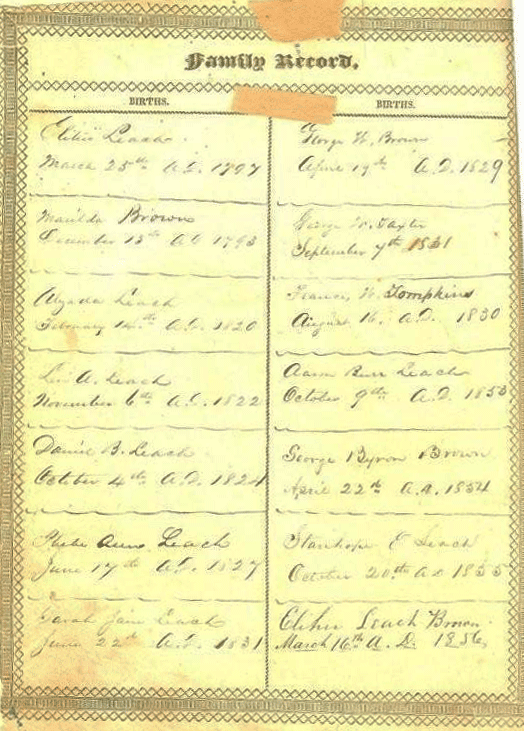 Family Record.
BIRTHS.
Leach
March 25th A.D. 1797
Matilda Brown
December 13th A.D. 1793
Alzada Leach
February 14th A.D. 1820
Levi A. Leach
November 6th A.D. 1822
Daniel B. Leach
October 4th A.D. 1824
Phebe Ann Leach
June 17th A.D. 1827
Sarah Jane Leach
June 22d A.D. 1831
BIRTHS.
George W. Brown
April 19th A.D. 1829
George W. Baxter
September 7th 1831
Francis W. Tompkins
August 16. A.D. 1830
Aaron Burr Leach
October 9th A.D. 1853
George Byron Brown
April 22d A.D. 1854
Stanhope E Leach
October 20th A D 1855
Elihu Leach Brown
March 16th A. D. 1856,